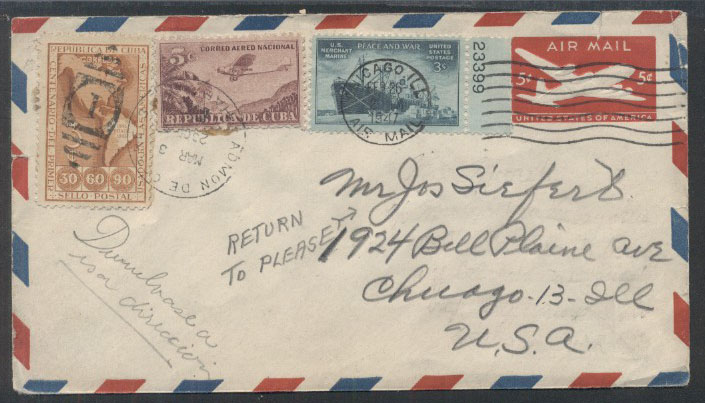 REPUBLICA DE CUBA
CENTENARIO DEL PRIMER
30 60 90
SELLO-POSTAL
5¢ CORREO AEREO NACIONAL
REPUBLICA DE CUBA
U.S. MERCHANT MARINE PEACE AND WAR UNITED STATES POSTAGE
3¢
23399
CAGO ILL
1947
AIR MAIL
AIR MAIL
5¢ 5¢
UNITED STATES OF AMERICA
ADMON DE
MAR 3
Mr Jos Siefert
RETURN
TO PLEASE
1924 Bell Plaine ave
Chicago-13-Ill
U.S.A.
Dumelvase a
isa direccion